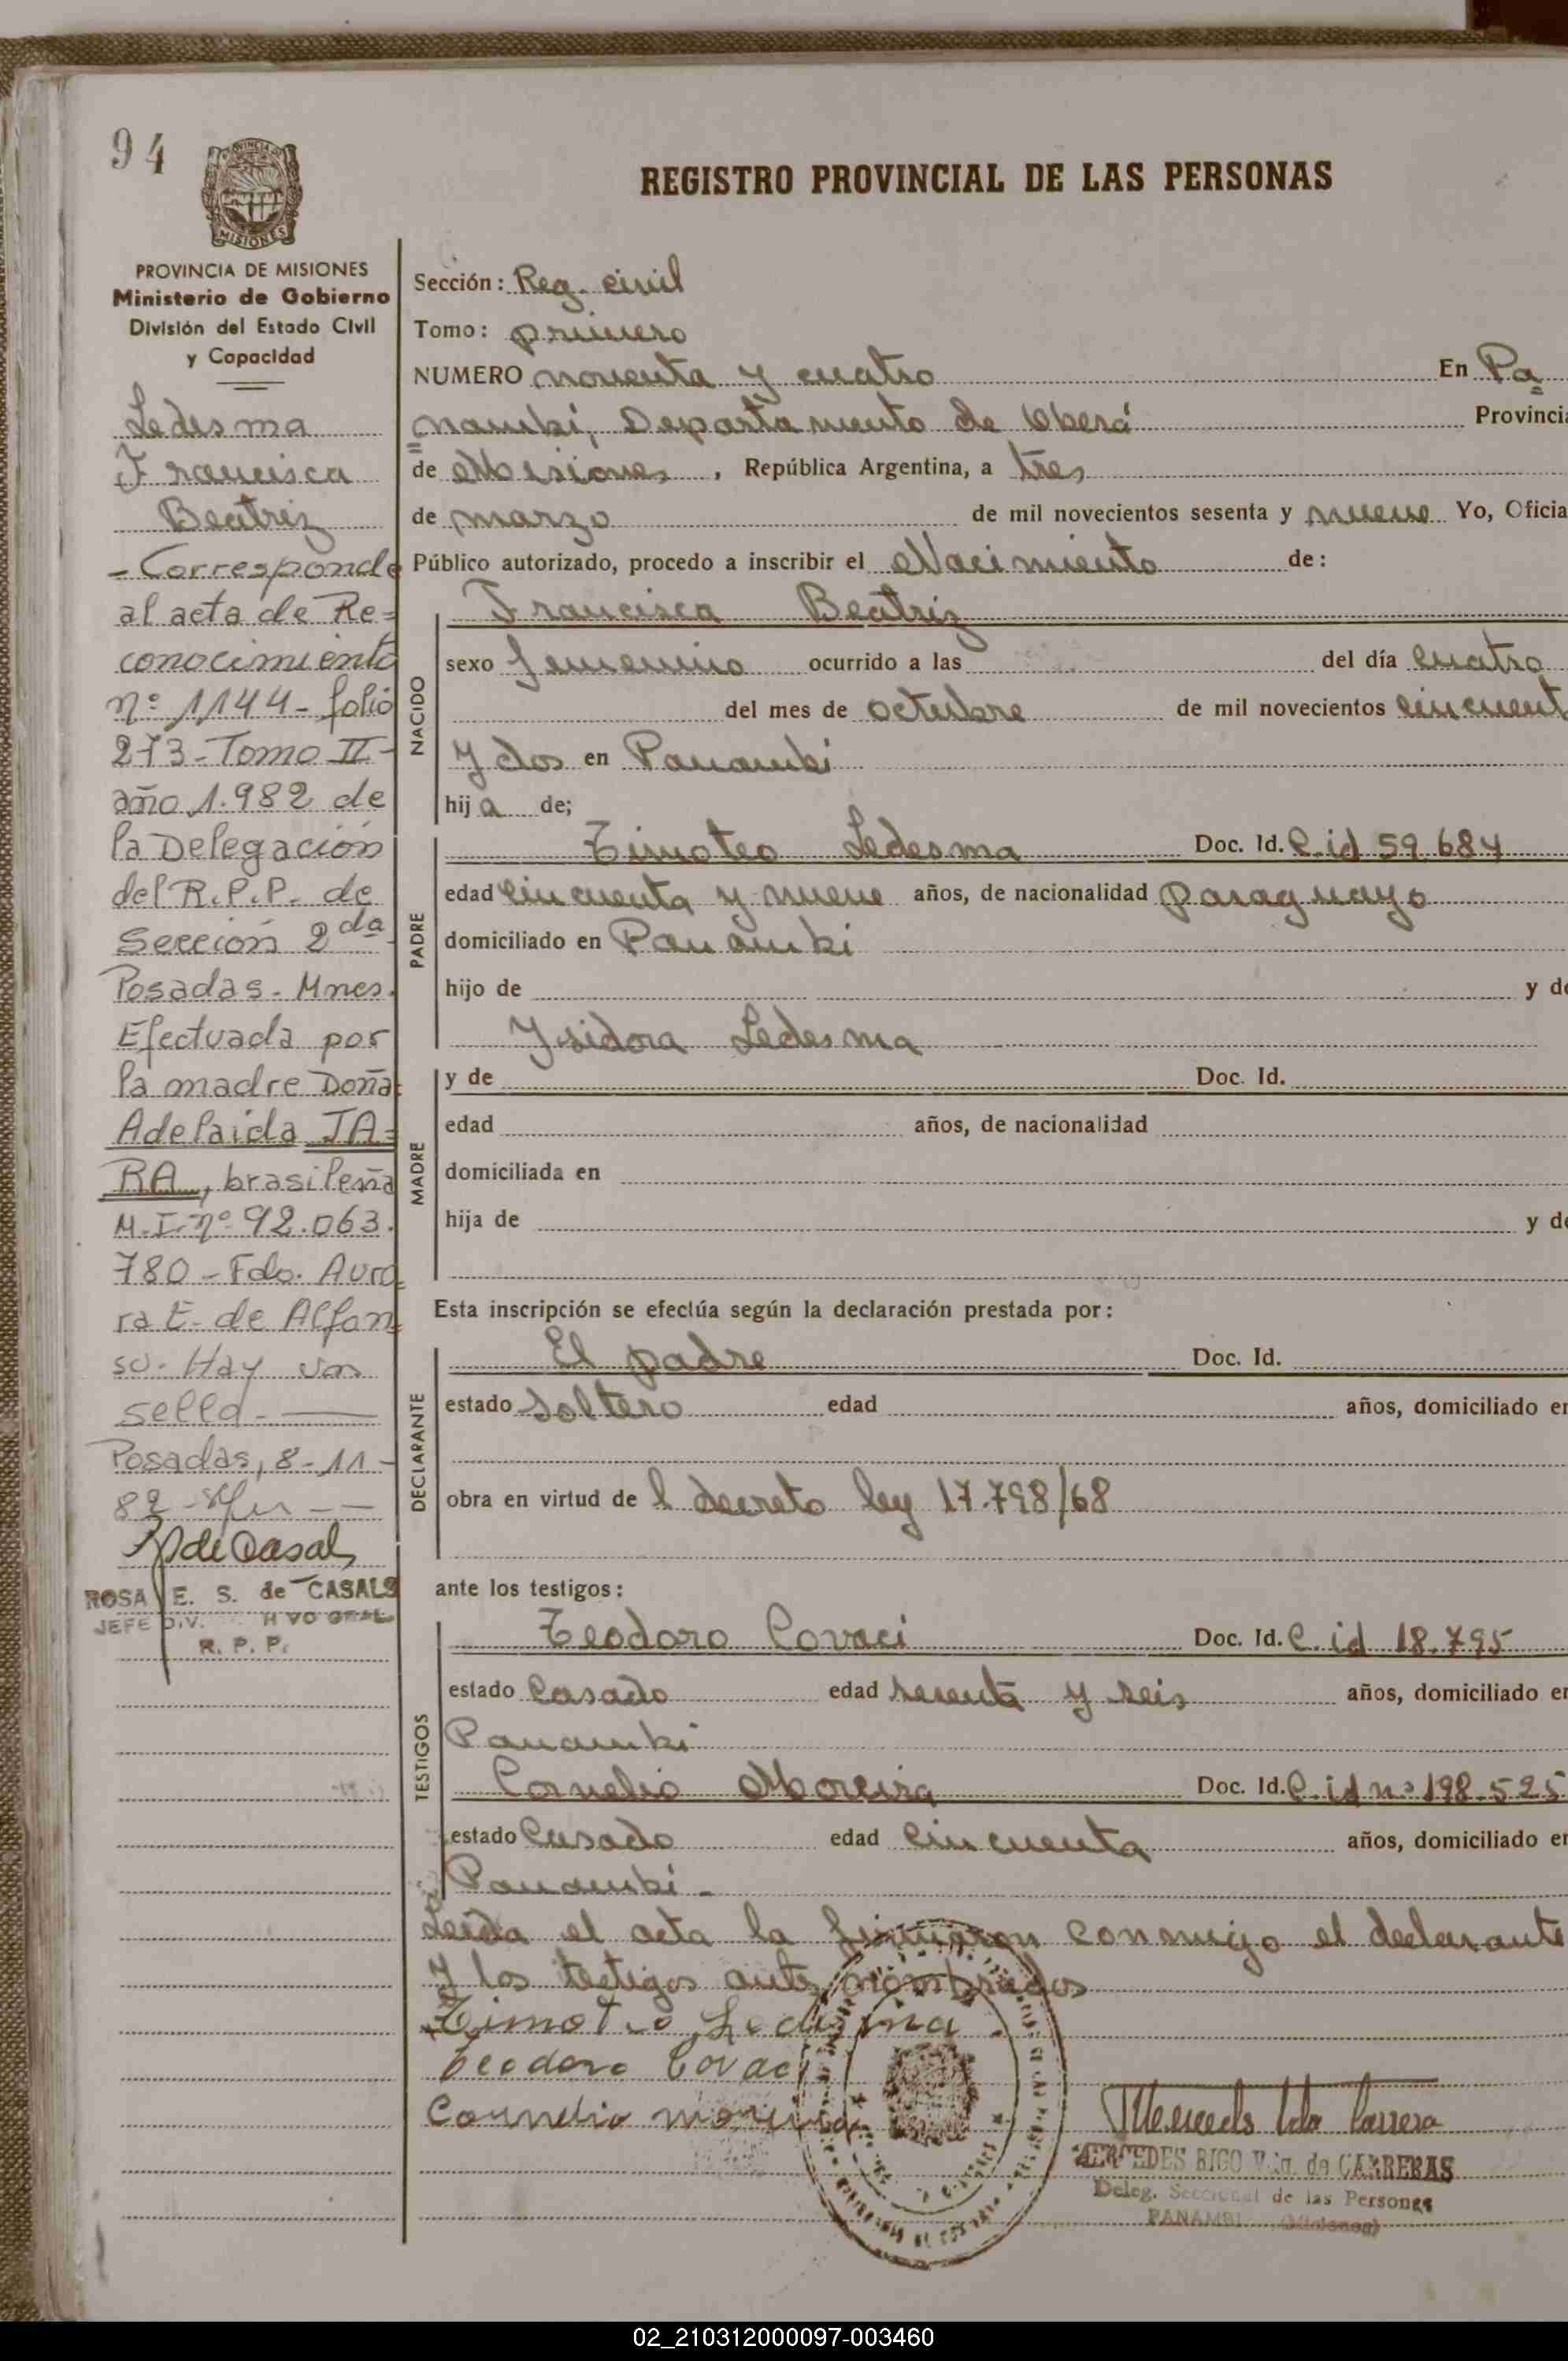 94
PROVINCIA DE
MISIONES
REGISTRO PROVINCIAL DE LAS PERSONAS
PROVINCIA DE MISIONES
Ministerio de Gobierno
División del Estado Civil
y Capacidad
Ledesma
Francisca
Beatriz
- Corresponde
al acta de Re=
conocimiento
nº 1144 - folio
273 - Tomo II -
año 1.982 de
la Delegación
del R.P.P. de
Sección 2da -
Posadas - Mnes.
Efectuada por
la madre Doña
Adelaida JA=
RA, brasileña
M.I. nº 92.063.
780 - Fdo. Auro=
ra E. de Alfon=
so. Hay un
sello -
Posadas, 8-11-
82 -
R de Casals
ROSA E. S. de CASALS
JEFE DIV.
R. P. P.
Sección: Reg. civil
Tomo: primero
NUMERO noventa y cuatro En Pa=
=nambí, Departamento de Oberá Provincia
de Misiones, República Argentina, a tres
de marzo de mil novecientos sesenta y nueve Yo, Oficia
Público autorizado, procedo a inscribir el Nacimiento de:
NACIDO
Francisca Beatriz
sexo femenino ocurrido a las del día cuatro
del mes de octubre de mil novecientos cincuent
y dos en Panambi
hija de;
PADRE
Timoteo Ledesma Doc. Id. C. id 59.684
edad cincuenta y nueve años, de nacionalidad paraguayo
domiciliado en Panambi
hijo de y de
Ysidora Ledesma
MADRE
y de Doc. Id.
edad años, de nacionalidad
domiciliada en
hija de y de
Esta inscripción se efectúa según la declaración prestada por:
DECLARANTE
El padre Doc. Id.
estado Soltero edad años, domiciliado en
obra en virtud de l decreto ley 17.798/68
ante los testigos:
TESTIGOS
Teodoro Covaci Doc. Id. C. id 18.795
estado Casado edad sesenta y seis años, domiciliado en
Panambi
Cornelio Moreira Doc. Id. C. id nº 198.525
estado Casado edad cincuenta años, domiciliado en
Panambi -
Leída el acta la firmaron conmigo el declarante
y los testigos antes nombrados
Timoteo Ledesma
Teodoro Covaci
Cornelio moreira
MERCEDES RICO Vda. de CARRERAS
Deleg. Seccional de las Personas
PANAMBI (Misiones)
02_210312000097-003460